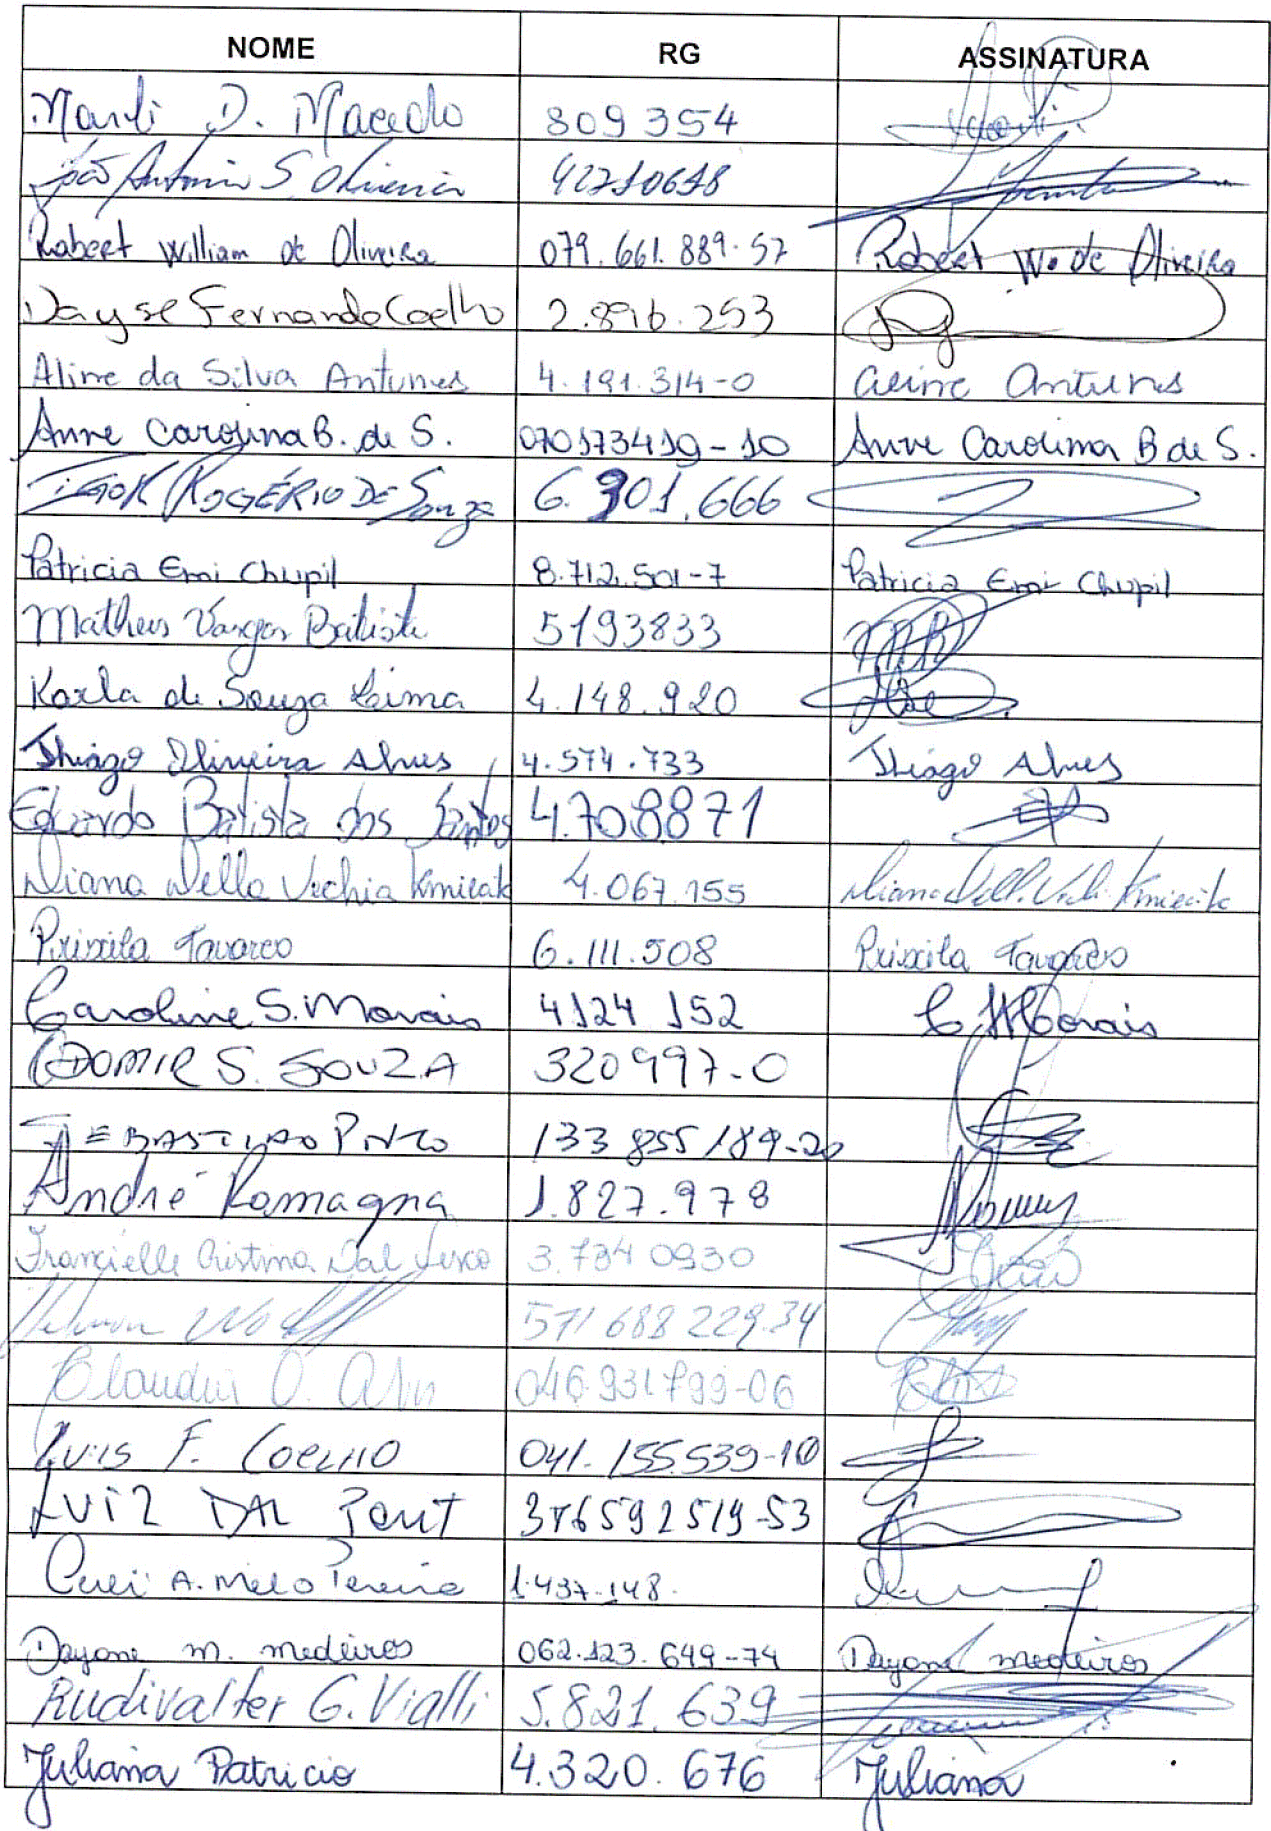 NOME RG ASSINATURA
Marli D. Macedo 809354 Marli
João Antonio S. Oliveira 42710618
Robert William de Oliveira 079.661.889-57 Robert W. de Oliveira
Dayse Fernanda Coelho 2.896.253
Aline da Silva Antunes 4.191.314-0 Aline Antunes
Anne Carolina B. de S. 070173419-10 Anne Carolima B de S.
Igor Rogério de Souza 6.901.666
Patricia Emi Chupil 8.712.501-7 Patricia Emi Chupil
Matheus Vargas Batista 5193833
Karla de Souza Leima 4.148.920
Thiago Oliveira Alves 4.574.733 Thiago Alves
Eduardo Batista dos Santos 4.708871
Diana Della Vechia Kmiecik 4.067.155 Diana Dell. Vechi. Kmiecik
Priscila Tavares 6.111.508 Priscila Tavares
Caroline S. Morais 4124152 C Morais
S. SOUZA 320997-0
SEBASTIÃO PINTO 133855189-20
André Romagna 1.827.978
Francielle Cristina Dal 3.7340930
571688229.34
Claudia O. 046.931799-06
Luis F. Coelho 041.155.539-10
LUIZ DAL Pont 376592519-53
A. Melo Pereira 1.437.148.
Dayane M. Medeiros 062.123.649-74 Dayane Medeiros
Rudivalter G. Vialli 5.821.639
Juliana Patricio 4.320.676 Juliana